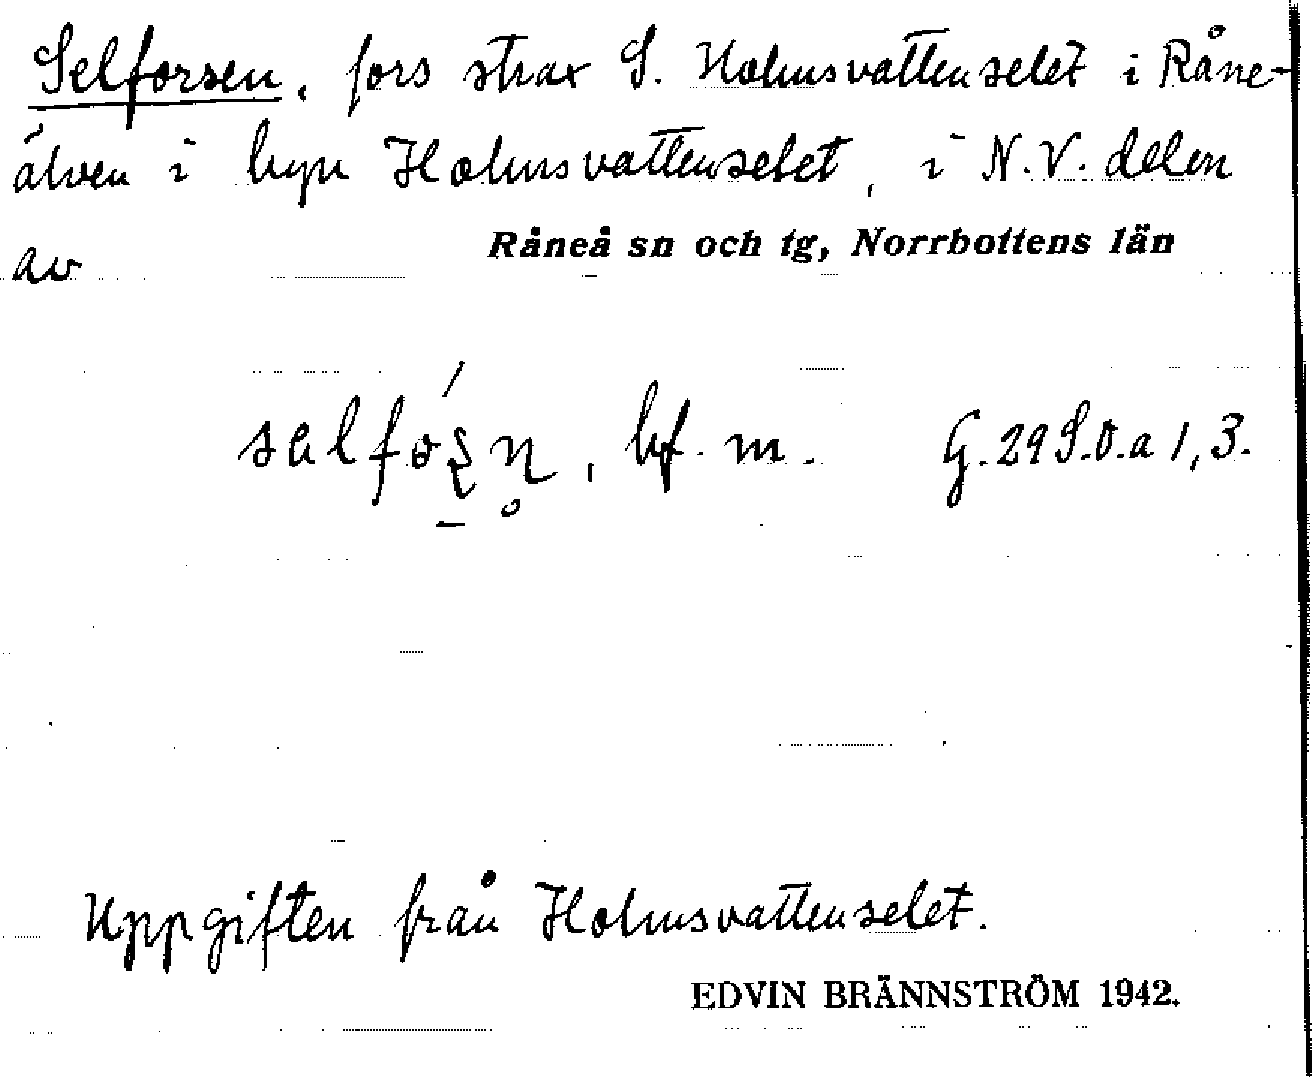 Selforsen, fors strax S. Holmsvattenselet i Råne-
älven i byn Holmsvattenselet, i N.V. delen
av Råneå sn och tg, Norrbottens län
bf. m. G.29 S.O.a 1,3.
Uppgiften från Holmsvattenselet.
EDVIN BRÄNNSTRÖM 1942.